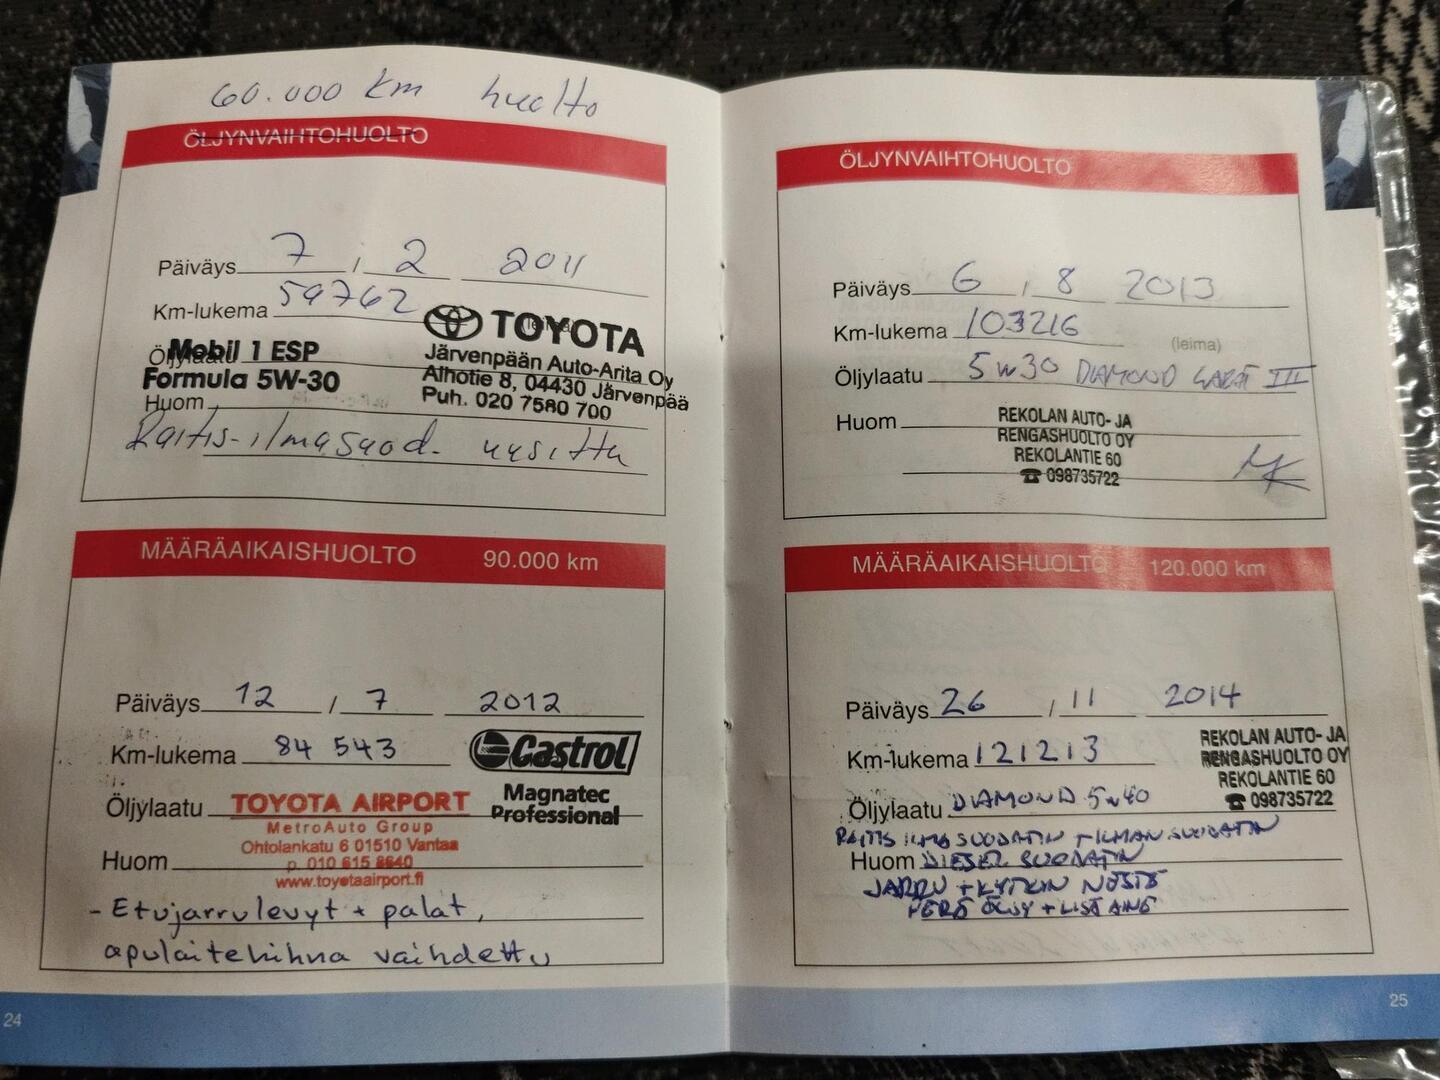 60.000 km huolto
ÖLJYNVAIHTOHUOLTO
Päiväys 7 / 2 2011
Km-lukema 59762
(leima)
TOYOTA
Järvenpään Auto-Arita Oy
Alhotie 8, 04430 Järvenpää
Puh. 020 7580 700
Öljylaatu
Mobil 1 ESP
Formula 5W-30
Huom
Raitis-ilmasuod. uusittu
MÄÄRÄAIKAISHUOLTO 90.000 km
Päiväys 12 / 7 2012
Km-lukema 84 543
Castrol
Magnatec
Professional
Öljylaatu TOYOTA AIRPORT
MetroAuto Group
Ohtolankatu 6 01510 Vantaa
Huom p. 010 615 8640
www.toyotaairport.fi
- Etujarrulevyt + palat,
apulaitehihna vaihdettu
24
ÖLJYNVAIHTOHUOLTO
Päiväys 6 / 8 2013
Km-lukema 103216
(leima)
Öljylaatu 5W30 DIAMOND III
Huom
REKOLAN AUTO- JA
RENGASHUOLTO OY
REKOLANTIE 60
☎ 098735722
MK
MÄÄRÄAIKAISHUOLTO 120.000 km
Päiväys 26 / 11 2014
Km-lukema 121213
REKOLAN AUTO- JA
RENGASHUOLTO OY
REKOLANTIE 60
☎ 098735722
Öljylaatu DIAMOND 5w40
RAITIS ILMA SUODATIN + ILMAN SUODATIN
Huom DIESEL SUODATIN
JARRU + KYTKIN NESTE
PERÄ ÖLJY + LISÄAINE
25